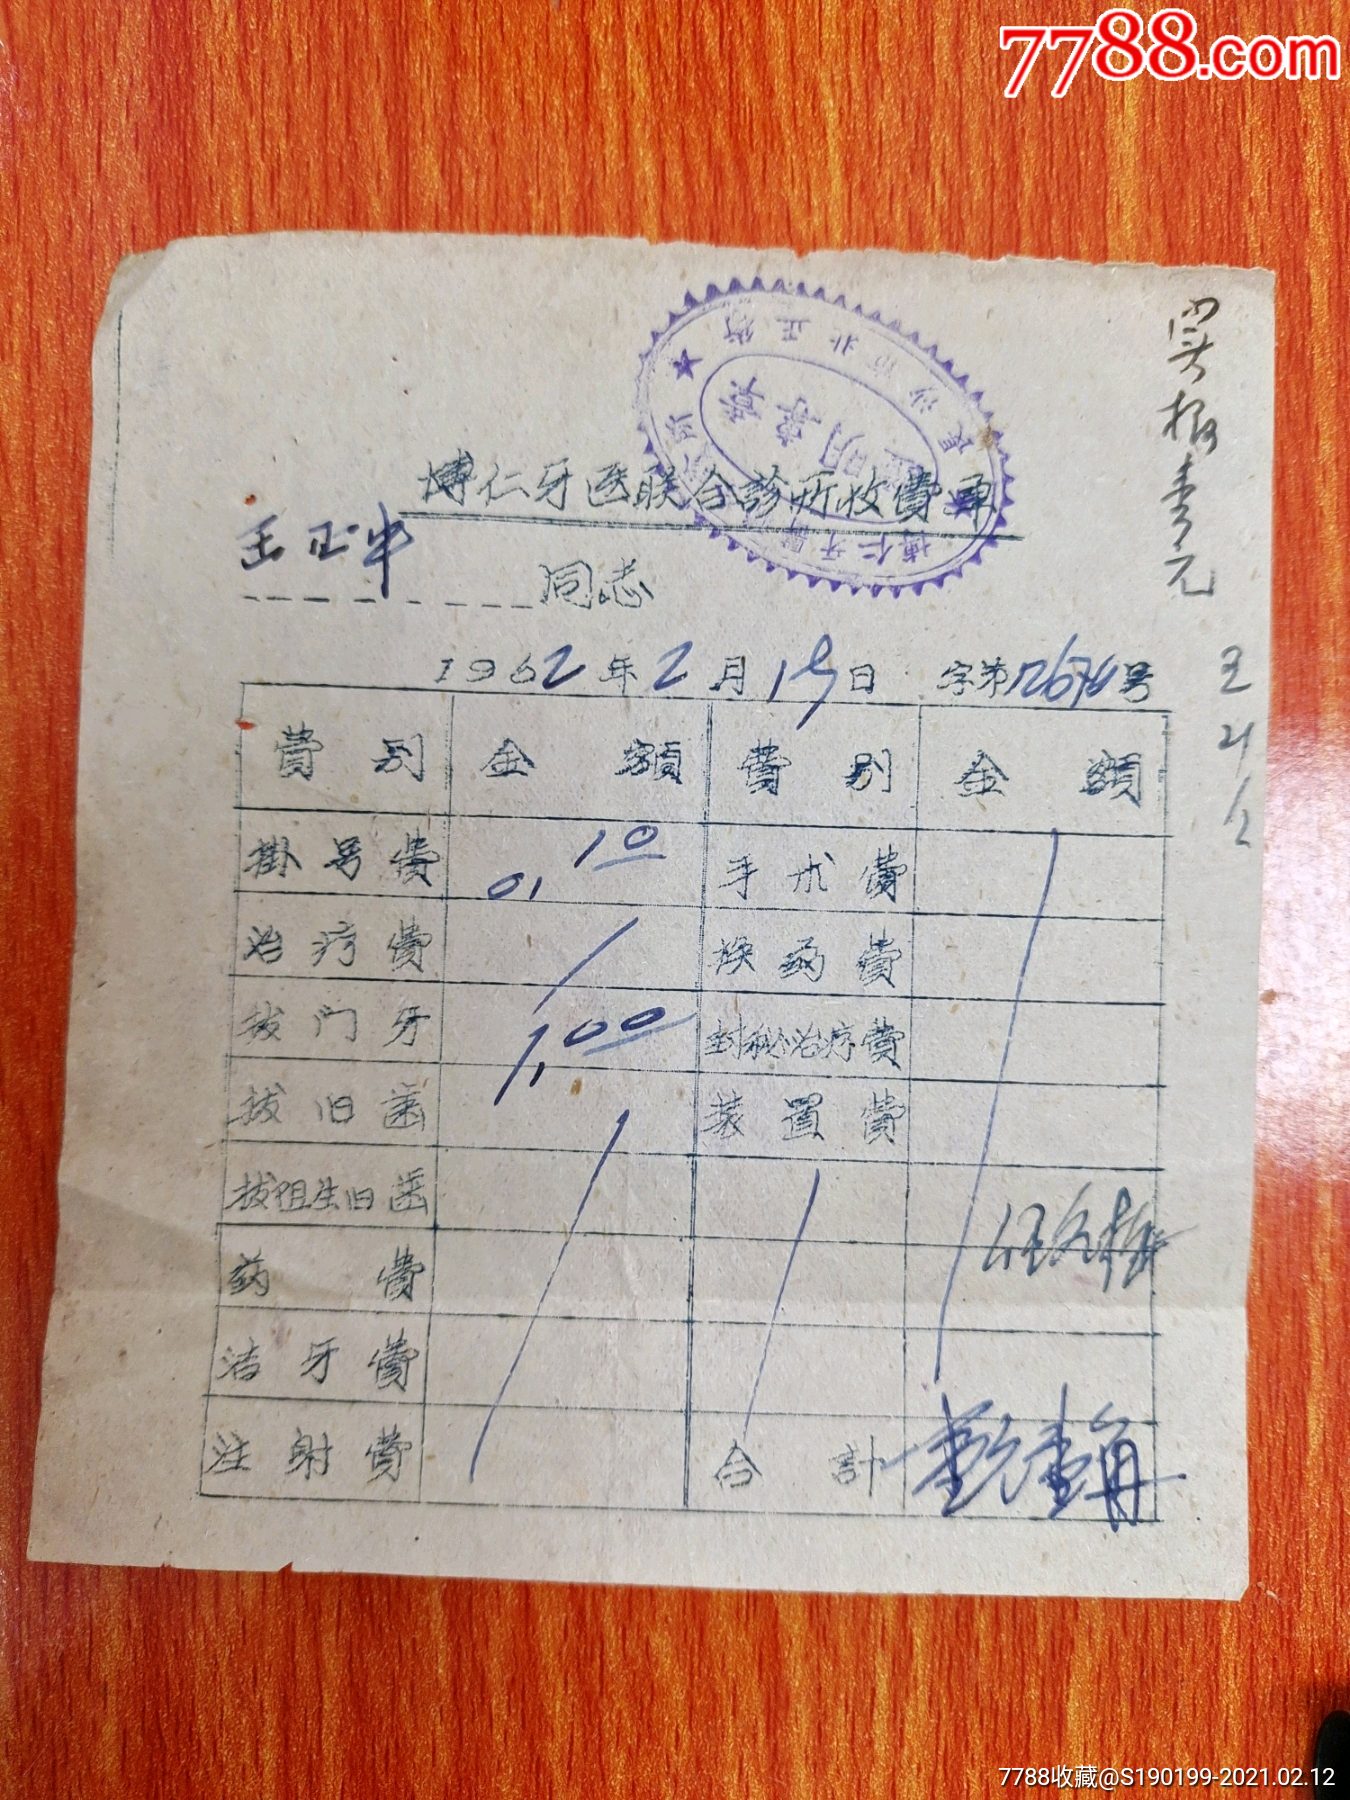 7788.com
实报壹元
博仁牙医联合診所收費单
长沙市北正街
証明章
博仁牙醫
王正中 同志
1962年2月19日 字第 号
費别 金額 費别 金額
掛号費 0.10 手术費
治疗費 换药費
拔门牙 1.00 封秘治疗費
拔旧齒 装置費
拔阻生旧齒
药費
洁牙費
注射費 合計 壹元壹角
7788收藏@S190199-2021.02.12